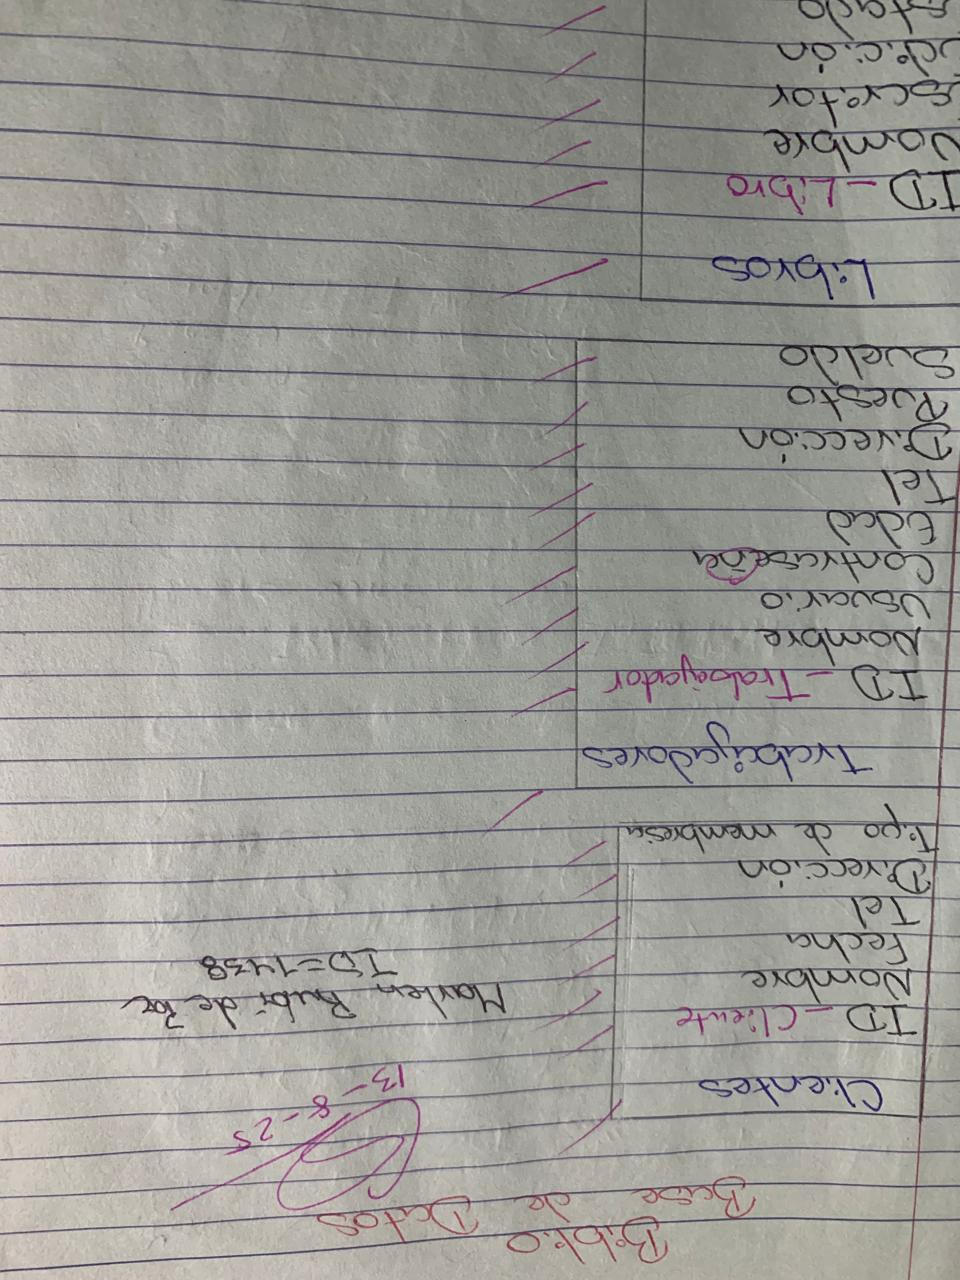 Biblio
Base de Datos
13-8-25
Clientes
ID-Cliente
Nombre
Fecha
Tel
Dirección
Tipo de membresia
Marlen Rubi de
ID=1438
Trabajadores
ID-Trabajador
Nombre
Usuario
Contraseña
Edad
Tel
Dirección
Puesto
Sueldo
Libros
ID-Libro
Nombre
Escritor
Edición
Estado